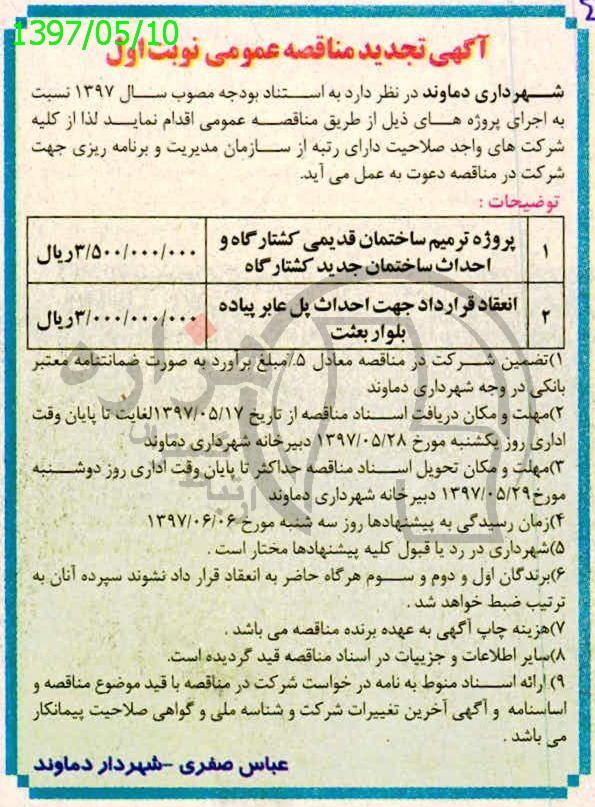 1397/05/10
آگهی تجدید مناقصه عمومی نوبت اول
شـــهرداری دماوند در نظر دارد به اســـتناد بودجه مصوب ســـال ۱۳۹۷ نسبت
به اجرای پروژه هـــای ذیل از طریق مناقصـــه عمومی اقدام نمایـــد لذا از کلیه
شرکت های واجد صلاحیت دارای رتبه از ســـازمان مدیریت و برنامه ریزی جهت
شرکت در مناقصه دعوت به عمل می آید.
توضیحات :
۱ پروژه ترمیم ساختمان قدیمی کشتارگاه و ۳/۵۰۰/۰۰۰/۰۰۰ریال
احداث ساختمان جدید کشتارگاه
۲ انعقاد قرارداد جهت احداث پل عابر پیاده ۳/۰۰۰/۰۰۰/۰۰۰ریال
بلوار بعثت
۱)تضمین شـــرکت در مناقصه معادل ۵٪مبلغ برآورد به صورت ضمانتنامه معتبر
بانکی در وجه شهرداری دماوند
۲)مهلت و مکان دریافت اســـناد مناقصه از تاریخ ۱۳۹۷/۰۵/۱۷لغایت تا پایان وقت
اداری روز یکشنبه مورخ ۱۳۹۷/۰۵/۲۸ دبیرخانه شهرداری دماوند
۳)مهلت و مکان تحویل اســـناد مناقصه حداکثر تا پایان وقت اداری روز دوشـــنبه
مورخ۱۳۹۷/۰۵/۲۹ دبیرخانه شهرداری دماوند
۴)زمان رسیدگی به پیشنهادها روز سه شنبه مورخ ۱۳۹۷/۰۶/۰۶
۵)شهرداری در رد یا قبول کلیه پیشنهادها مختار است .
۶)برندگان اول و دوم و ســـوم هرگاه حاضر به انعقاد قرار داد نشوند سپرده آنان به
ترتیب ضبط خواهد شد .
۷)هزینه چاپ آگهی به عهده برنده مناقصه می باشد .
۸)سایر اطلاعات و جزییات در اسناد مناقصه قید گردیده است.
۹) ارائه اســـناد منوط به نامه در خواست شرکت در مناقصه با قید موضوع مناقصه و
اساسنامه و آگهی آخرین تغییرات شرکت و شناسه ملی و گواهی صلاحیت پیمانکار
می باشد .
عباس صفری -شهردار دماوند